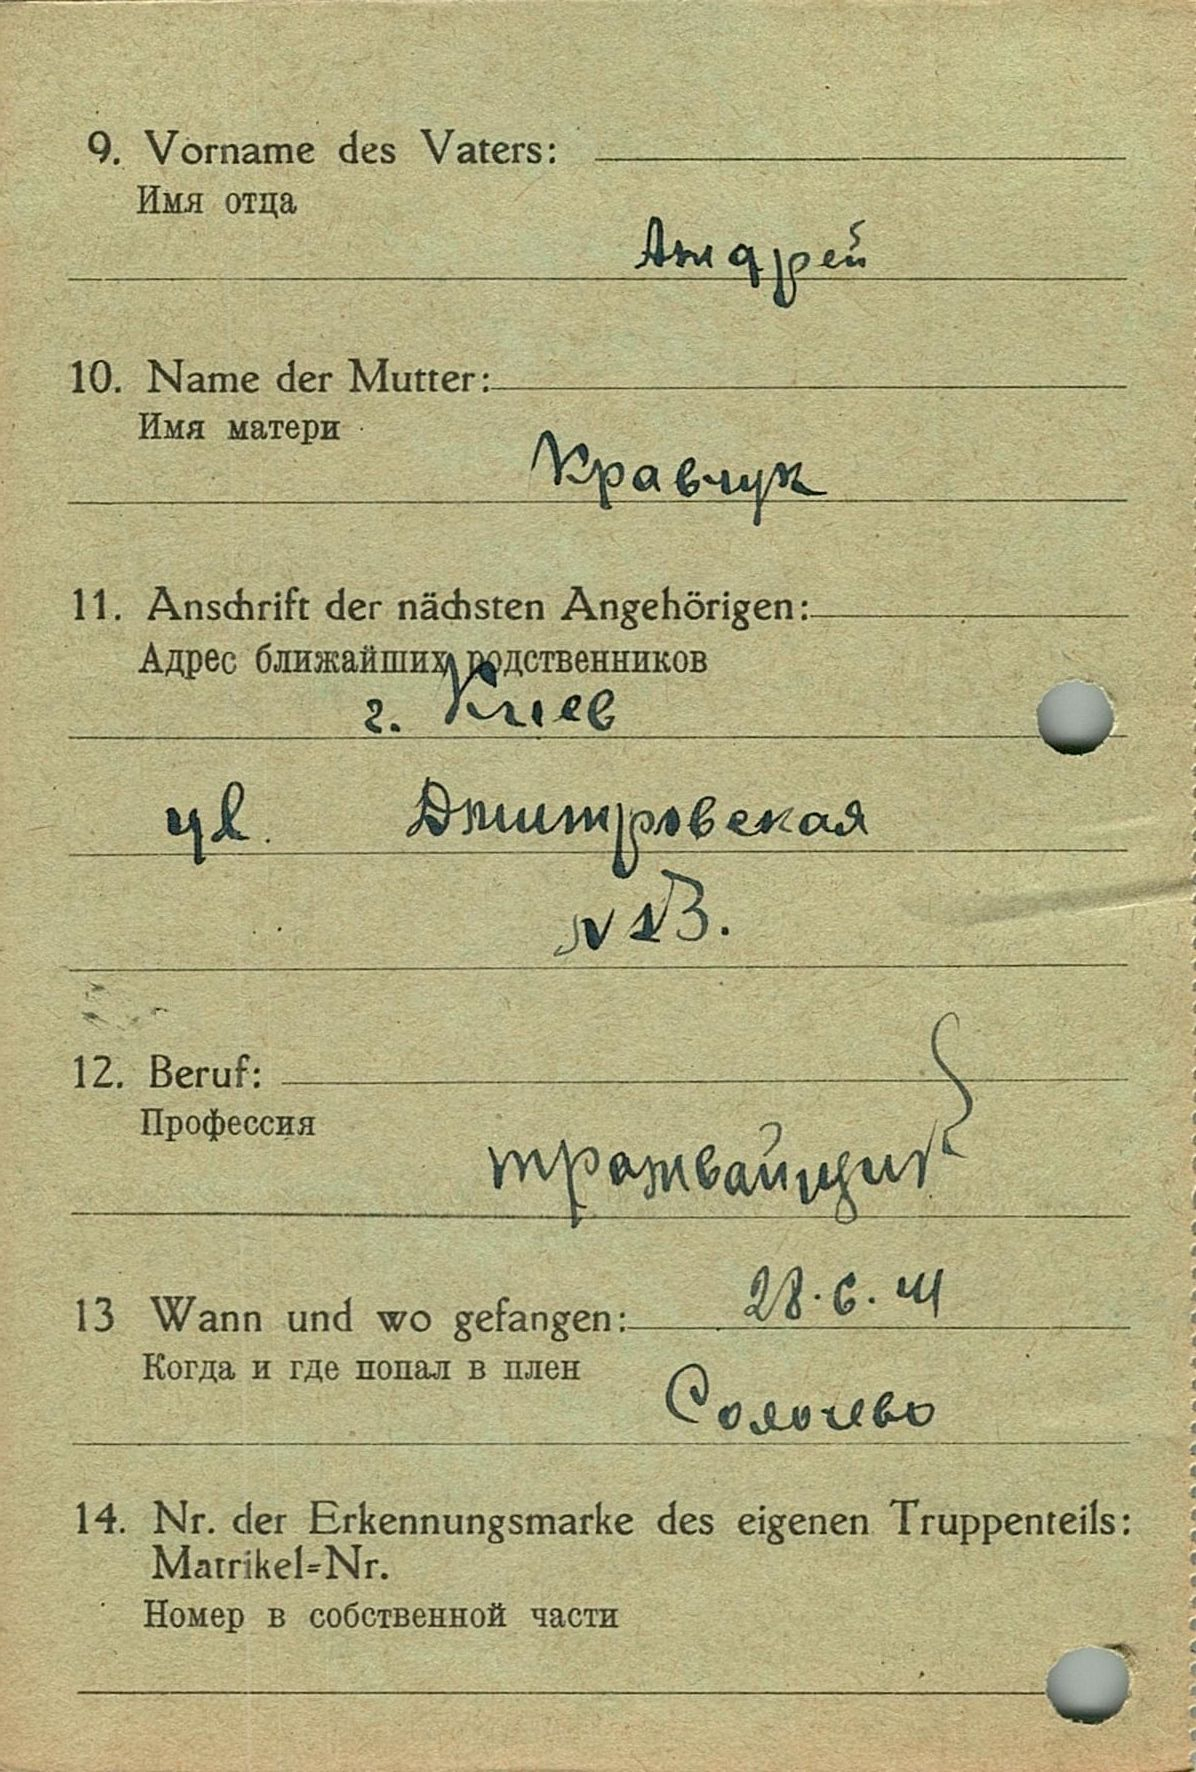 9. Vorname des Vaters:
Имя отца
Андрей
10. Name der Mutter:
Имя матери
Кравчук
11. Anschrift der nächsten Angehörigen:
Адрес ближайших родственников
г. Киев
ул. Дмитровская
N 13.
12. Beruf:
Профессия
трамвайщик
13 Wann und wo gefangen: 28.6.41
Когда и где попал в плен
Солочево
14. Nr. der Erkennungsmarke des eigenen Truppenteils:
Matrikel=Nr.
Номер в собственной части